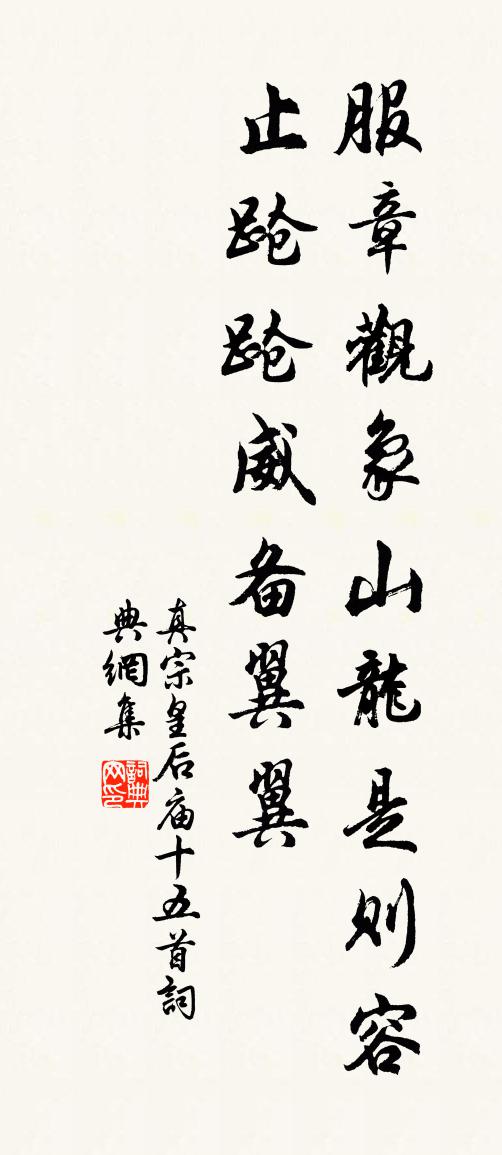 服章觀象山龍是則容
止蹌蹌威备翼翼
真宗皇后庙十五首詞
典網集
詞典
网印